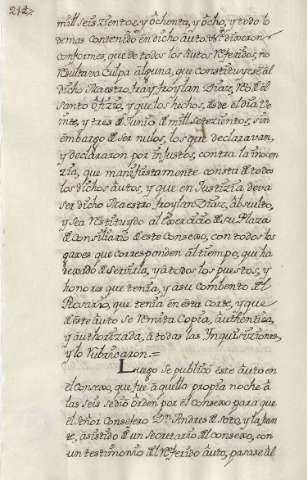 212.
mill seis zientos, y ochenta, y ocho, y todo lo
demas contenido en dicho auto dixeron
conformes, que de todos los autos referidos, no
resultava Culpa alguna, que constituyese al
dicho Maestro fray froylan Diaz, Reo del
Santo ofizio, y que los hechos, desde el dia Ve-
inte, y tres de Junio de mill setezientos, sin
embargo de ser nulos, los que declaravan,
y declararon por injustos, contra la inozen
zia, que manifiestamente consta de todos
los dichos autos, y que en Justizia deva
ser dicho Maestro, froylan Diaz, Absuelto,
y sea Restituydo al exerzizio de su Plaza
de Consiliario de este Consexo, con todos los
gaxes que corresponden al tiempo, que ha
dexado de servirla, y a todos los puestos, y
honores que tenia, y a su combento del
Rosario, que tenia en esta corte, y que
de este auto se Remita Copia, authentica,
y authorizada, a todas las Ynquisiziones,
y lo Rubricaron.=
Luego se publico este auto en
el consexo, que fue aquella propia noche a
las seis se dio orden por el consexo para que
el señor Consejero Dn. Andres de Soto, y la
asistido de un Secretario del consexo, con
un testimonio del referido auto, pasase al